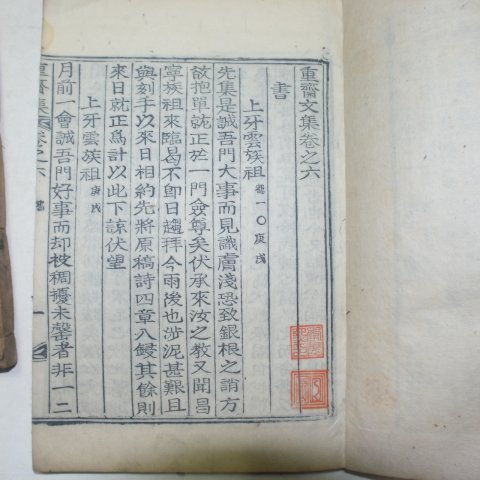 重齋文集卷之六
書
上牙雲族祖 卷一〇庚戌
先集是誠吾門大事而見識膚淺恐致銀根之誚方
故抱單就正於一門僉尊矣伏承來汝之教又聞昌
寧族祖來臨曷不卽日趨拜今雨後也涉泥甚艱且
與刻手以來日相約先將原稿詩四章入鋟其餘則
來日就正爲計以此下諒伏望
上牙雲族祖 庚戌
月前一會誠吾門好事而却被稠擾未罄者非一二
重齋集 卷之六 書 一